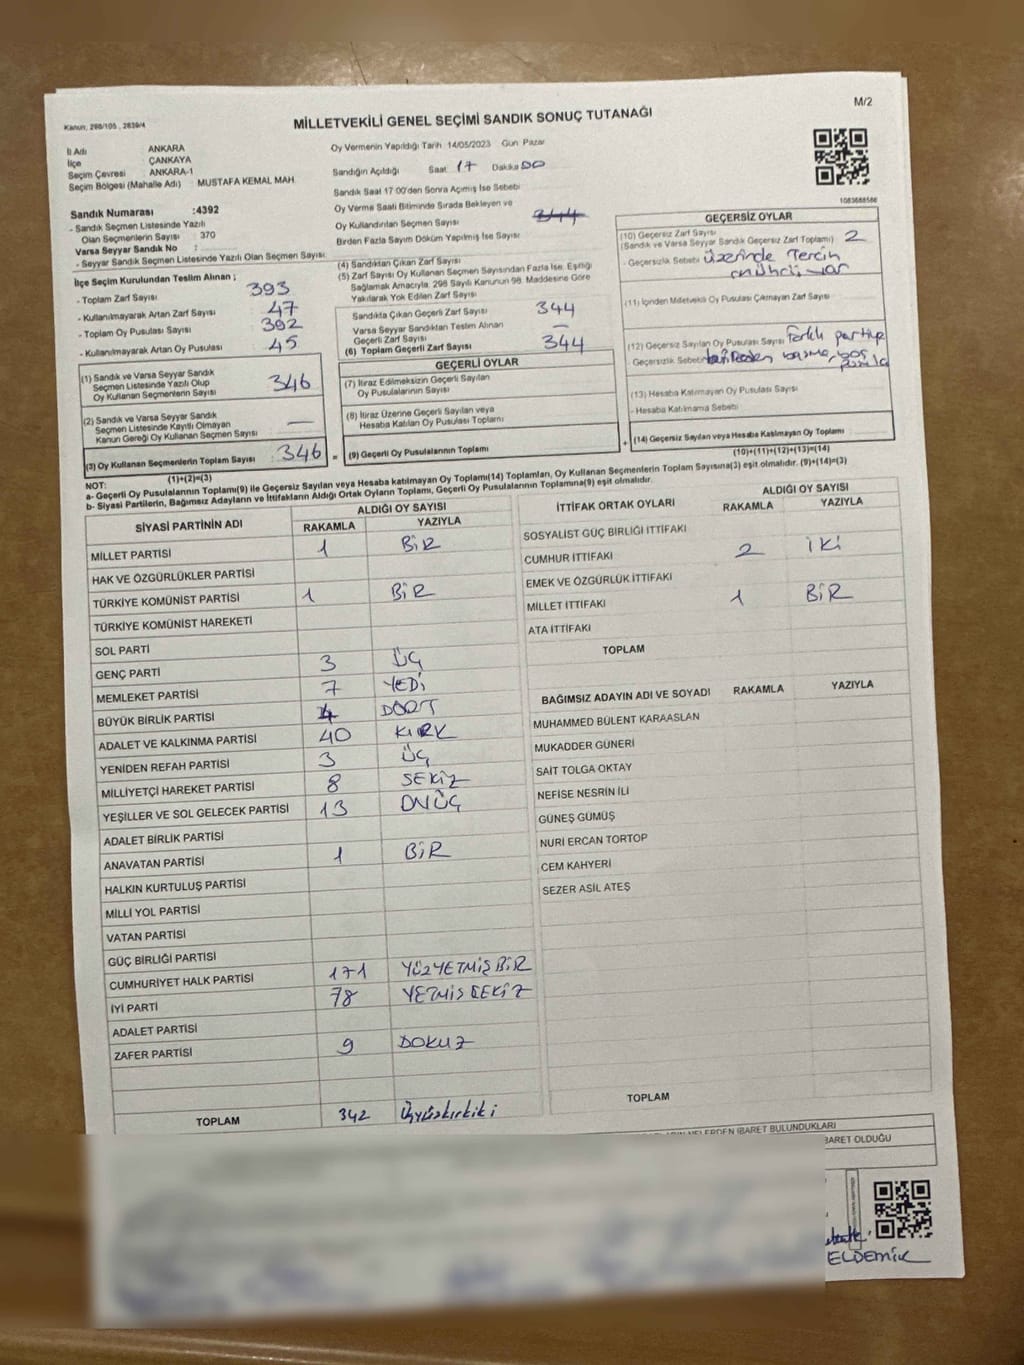 M/2
Kanun, 298/105 , 2839/4
MİLLETVEKİLİ GENEL SEÇİMİ SANDIK SONUÇ TUTANAĞI
İl Adı ANKARA
İlçe ÇANKAYA
Seçim Çevresi ANKARA-1
Seçim Bölgesi (Mahalle Adı) MUSTAFA KEMAL MAH
Oy Vermenin Yapıldığı Tarih 14/05/2023 Gün Pazar
Sandığın Açıldığı Saat 17 Dakika 00
Sandık Saat 17:00'den Sonra Açılmış İse Sebebi
Oy Verme Saati Bitiminde Sırada Bekleyen ve
Oy Kullandırılan Seçmen Sayısı 344
Birden Fazla Sayım Döküm Yapılmış İse Sayısı
1083688586
Sandık Numarası :4392
- Sandık Seçmen Listesinde Yazılı
Olan Seçmenlerin Sayısı : 370
Varsa Seyyar Sandık No :
- Seyyar Sandık Seçmen Listesinde Yazılı Olan Seçmen Sayısı:
İlçe Seçim Kurulundan Teslim Alınan ;
- Toplam Zarf Sayısı : 393
- Kullanılmayarak Artan Zarf Sayısı : 47
- Toplam Oy Pusulası Sayısı : 392
- Kullanılmayarak Artan Oy Pusulası : 45
(1) Sandık ve Varsa Seyyar Sandık
Seçmen Listesinde Yazılı Olup
Oy Kullanan Seçmenlerin Sayısı : 346
(2) Sandık ve Varsa Seyyar Sandık
Seçmen Listesinde Kayıtlı Olmayan
Kanun Gereği Oy Kullanan Seçmen Sayısı : —
(3) Oy Kullanan Seçmenlerin Toplam Sayısı : 346
(1)+(2)=(3)
(4) Sandıktan Çıkan Zarf Sayısı
(5) Zarf Sayısı Oy Kullanan Seçmen Sayısından Fazla İse, Eşitliği
Sağlamak Amacıyla, 298 Sayılı Kanunun 98. Maddesine Göre
Yakılarak Yok Edilen Zarf Sayısı
Sandıkta Çıkan Geçerli Zarf Sayısı 344
Varsa Seyyar Sandıktan Teslim Alınan
Geçerli Zarf Sayısı —
(6) Toplam Geçerli Zarf Sayısı 344
GEÇERLİ OYLAR
(7) İtiraz Edilmeksizin Geçerli Sayılan
Oy Pusulasının Sayısı
(8) İtiraz Üzerine Geçerli Sayılan veya
Hesaba Katılan Oy Pusulası Toplamı
= (9) Geçerli Oy Pusulalarının Toplamı
GEÇERSİZ OYLAR
(10) Geçersiz Zarf Sayısı
(Sandık ve Varsa Seyyar Sandık Geçersiz Zarf Toplamı) 2
- Geçersizlik Sebebi üzerinde Tercih
mührü var
(11) İçinden Milletvekili Oy Pusulası Çıkmayan Zarf Sayısı
(12) Geçersiz Sayılan Oy Pusulası Sayısı Farklı partiye
- Geçersizlik Sebebi basma, boş
(13) Hesaba Katılmayan Oy Pusulası Sayısı
- Hesaba Katılmama Sebebi
+ (14) Geçersiz Sayılan veya Hesaba Katılmayan Oy Toplamı
(10)+(11)+(12)+(13)=(14)
NOT:
a- Geçerli Oy Pusulalarının Toplamı(9) ile Geçersiz Sayılan veya Hesaba katılmayan Oy Toplamı(14) Toplamları, Oy Kullanan Seçmenlerin Toplam Sayısına(3) eşit olmalıdır. (9)+(14)=(3)
b- Siyasi Partilerin, Bağımsız Adayların ve İttifakların Aldığı Ortak Oyların Toplamı, Geçerli Oy Pusulalarının Toplamına(9) eşit olmalıdır.
SİYASİ PARTİNİN ADI ALDIĞI OY SAYISI
RAKAMLA YAZIYLA
MİLLET PARTİSİ 1 BİR
HAK VE ÖZGÜRLÜKLER PARTİSİ
TÜRKİYE KOMÜNİST PARTİSİ 1 BİR
TÜRKİYE KOMÜNİST HAREKETİ
SOL PARTİ
GENÇ PARTİ 3 ÜÇ
MEMLEKET PARTİSİ 7 YEDİ
BÜYÜK BİRLİK PARTİSİ 4 DÖRT
ADALET VE KALKINMA PARTİSİ 40 KIRK
YENİDEN REFAH PARTİSİ 3 ÜÇ
MİLLİYETÇİ HAREKET PARTİSİ 8 SEKİZ
YEŞİLLER VE SOL GELECEK PARTİSİ 13 ONÜÇ
ADALET BİRLİK PARTİSİ
ANAVATAN PARTİSİ 1 BİR
HALKIN KURTULUŞ PARTİSİ
MİLLİ YOL PARTİSİ
VATAN PARTİSİ
GÜÇ BİRLİĞİ PARTİSİ
CUMHURİYET HALK PARTİSİ 171 YÜZYETMİŞBİR
İYİ PARTİ 78 YETMİŞSEKİZ
ADALET PARTİSİ
ZAFER PARTİSİ 9 DOKUZ
TOPLAM 342 Üçyüzkırkiki
İTTİFAK ORTAK OYLARI ALDIĞI OY SAYISI
RAKAMLA YAZIYLA
SOSYALİST GÜÇ BİRLİĞİ İTTİFAKI
CUMHUR İTTİFAKI 2 İKİ
EMEK VE ÖZGÜRLÜK İTTİFAKI
MİLLET İTTİFAKI 1 BİR
ATA İTTİFAKI
TOPLAM
BAĞIMSIZ ADAYIN ADI VE SOYADI RAKAMLA YAZIYLA
MUHAMMED BÜLENT KARAASLAN
MUKADDER GÜNERİ
SAİT TOLGA OKTAY
NEFİSE NESRİN İLİ
GÜNEŞ GÜMÜŞ
NURİ ERCAN TORTOP
CEM KAHYERİ
SEZER ASİL ATEŞ
TOPLAM
NELERDEN İBARET BULUNDUKLARI
BARET OLDUĞU
ELDEMİR